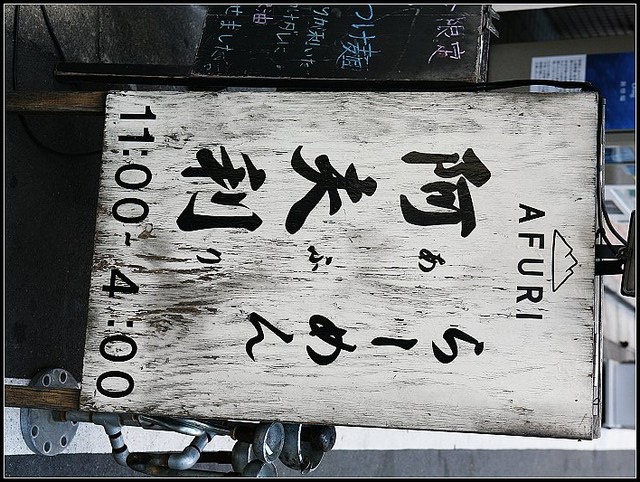 限定
つけ麺
油
せました。
AFURI
らーめん
阿夫利
あふり
11:00-4:00